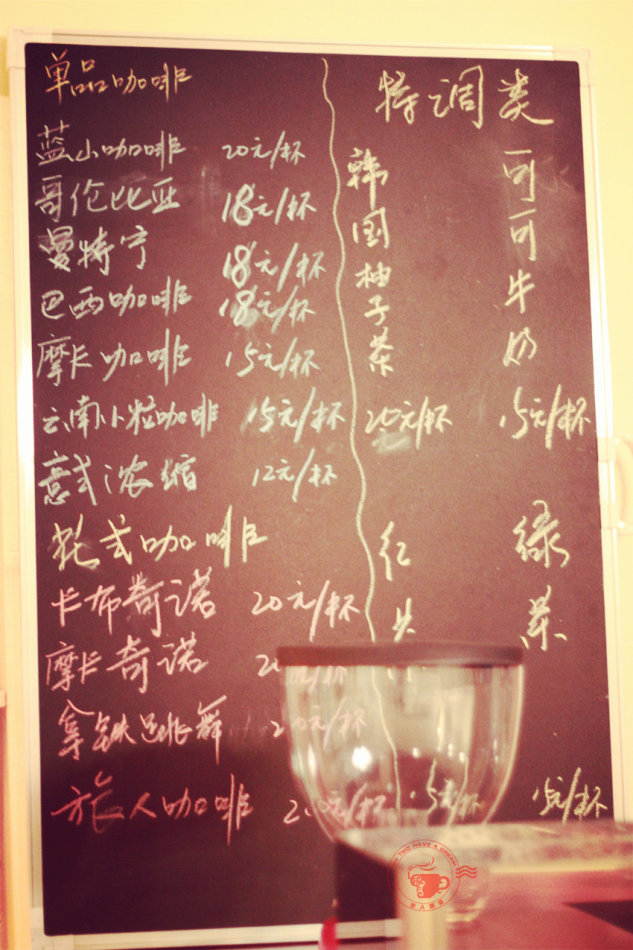 单品咖啡
蓝山咖啡 20元/杯
哥伦比亚 18元/杯
曼特宁 18元/杯
巴西咖啡 18元/杯
摩卡咖啡 15元/杯
云南小粒咖啡 15元/杯
意式浓缩 12元/杯
花式咖啡
卡布奇诺 20元/杯
摩卡奇诺 20元/杯
拿铁跳舞 20元/杯
旅人咖啡 20元/杯
特调类
韩国柚子茶
20元/杯
可可牛奶
15元/杯
红
15元/杯
绿茶
15元/杯
HAVE A DREAM